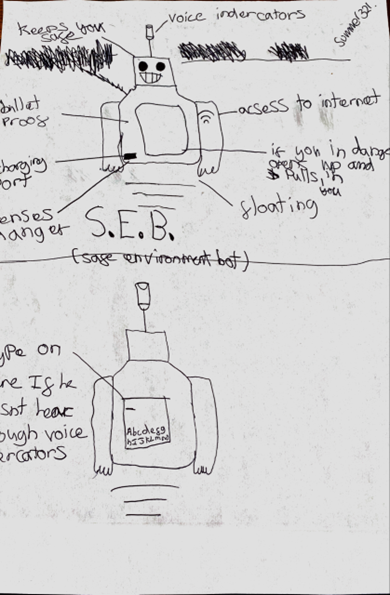 Keeps you
sase
voice indercators
Summer 321
bullet
proos
acsess to internet
charging
port
if you in dange
opens up and
pulls in
you
senses
danger
floating
S.E.B.
(sase environment bot)
type on
If he
hear
rough voice
ercators
Abcdesg
hijklmno